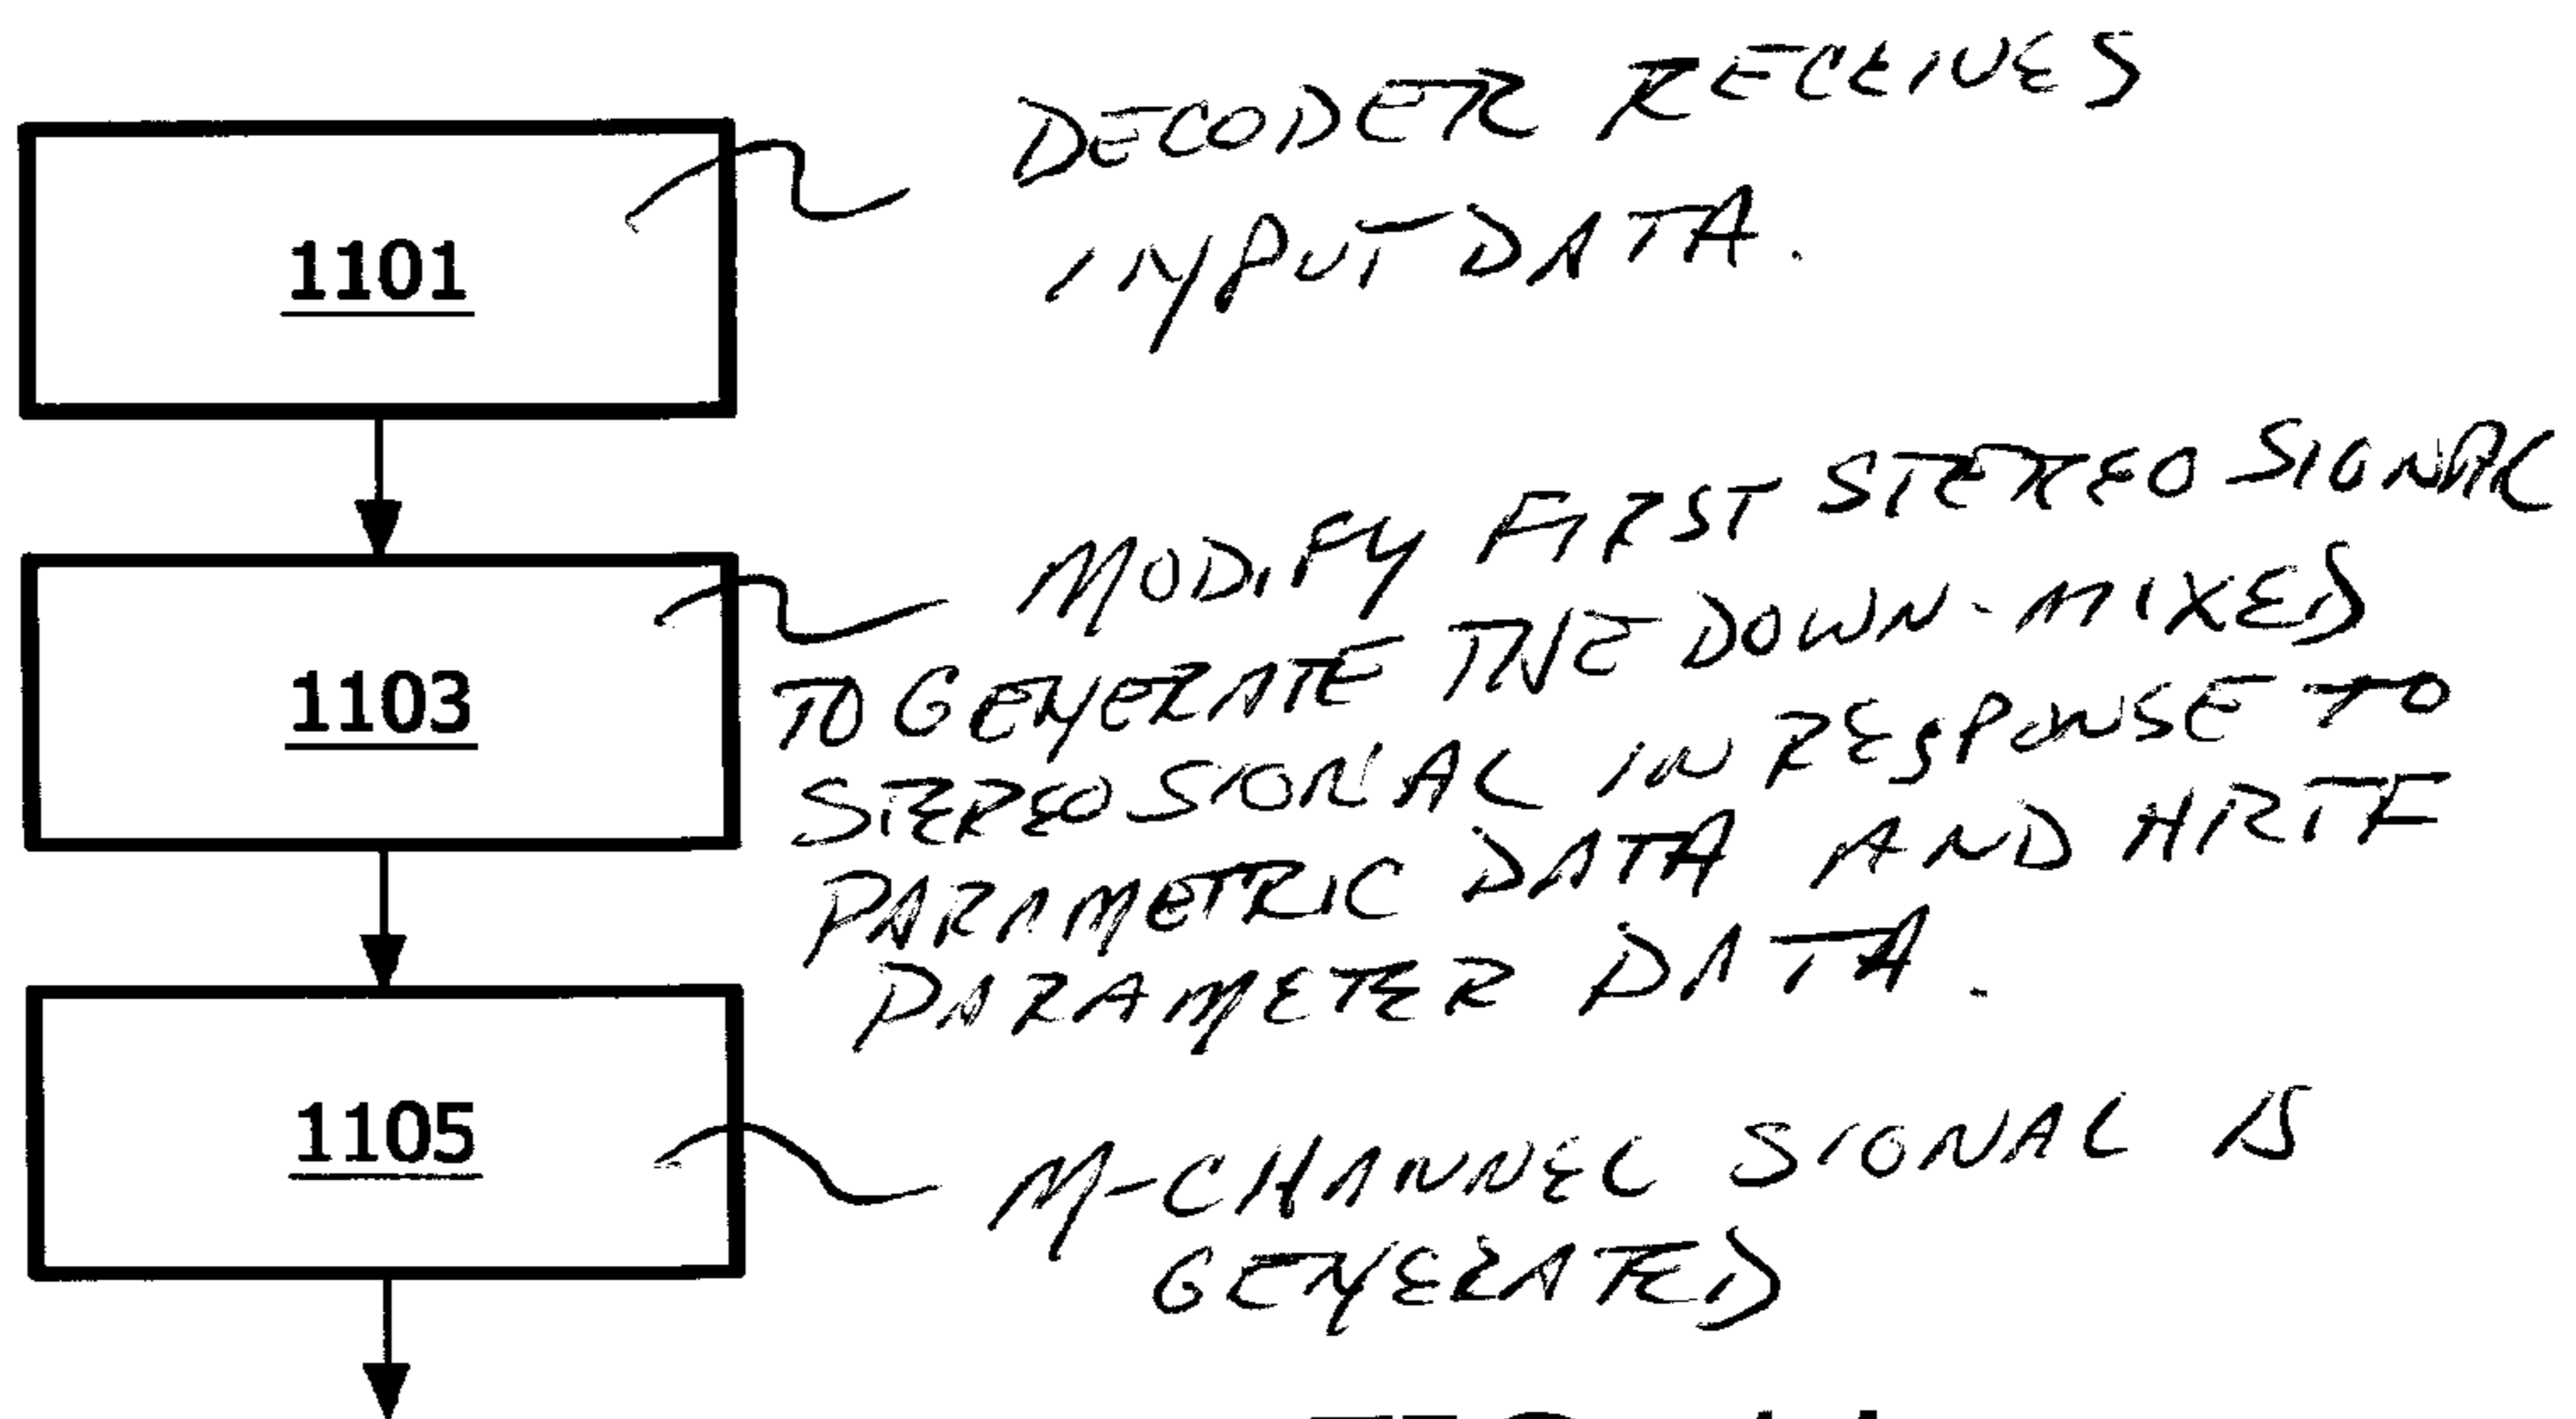 1101
DECODER RECEIVES
INPUT DATA.
1103
MODIFY FIRST STEREO SIGNAL
TO GENERATE THE DOWN-MIXED
STEREO SIGNAL IN RESPONSE TO
PARAMETRIC DATA AND HRTF
PARAMETER DATA.
1105
M-CHANNEL SIGNAL IS
GENERATED